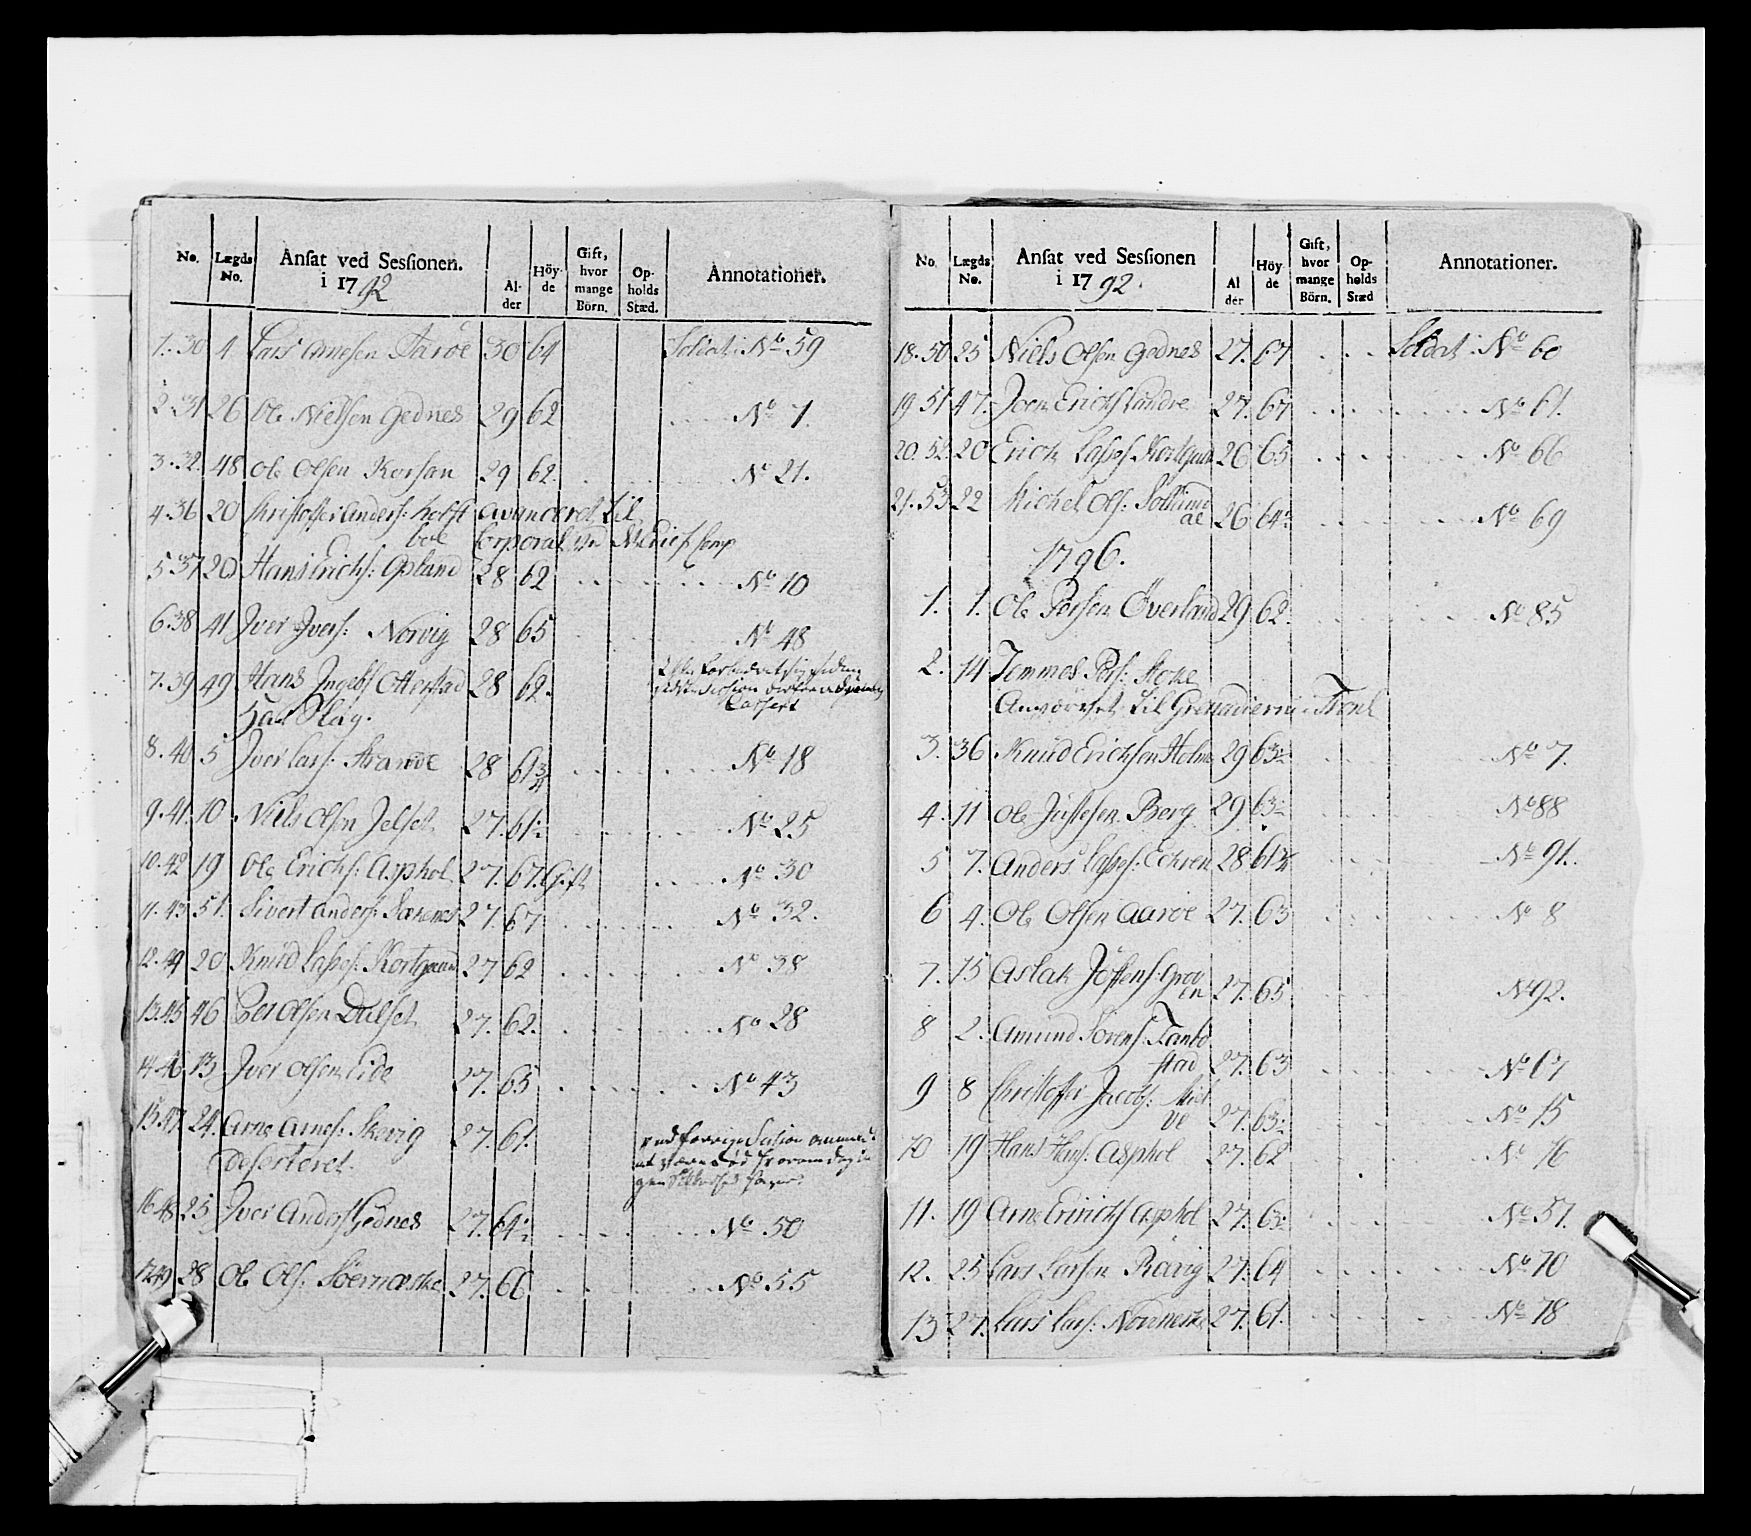 No. Lægds No. Ansat ved Sessionen. i 1792 Al- der Höy- de Gift, hvor mange Börn. Op- holds Stæd. Annotationer.
1. 30 4 Lars Arnesen Aarøe 30 64 Soldat: No 59
2. 31 26 Ole Nielsen Gednes 29 62 No 1.
3. 32. 48 Ole Olsen Korsan 29 62. No 21.
4. 36 20 Christoffer Anders: Holst avanceret til
boe Corporal ved Comp
5. 37 20 Hans Erichs: Opland 28 62 No 10
6. 38 41 Iver Ivers: Norvig 28 65 No 48
7. 39 49 Hans Ingebs Otterstad 28 62.
Cassert
8. 40 5 Iver Lars: Strande 28 61 3/4 No 18
9. 41. 10. Niels Olsen Jelset 27. 61½ No 25
10. 42 19 Ole Erichs: Asphol 27. 67. Gift No 30
11. 43 51. Sivert Anders: 27. 67 No 32.
12. 44 20 Knud Lasses: Kortgaard 27 62 No 38
13. 45 46 Per Olsen Dalset 27. 62. No 28
14. 46 13 Iver Olsen Eide 27. 65 No 43
15. 47. 24. Arne Arnes: Skevig 27. 61. ved forrige Session
deserteret.
16. 48 25 Iver Anders Gednes 27. 64½ No 50
17. 49 28 Ole Ols: 27. 66 No 55
No. Lægds No. Ansat ved Sessionen i 1792. Al der Höy- de Gift, hvor mange Börn. Op- holds Stæd Annotationer.
18. 50 25 Niels Olsen Gednes 27. 67 Soldat: No 60
19. 51 47. Joen Erichs Landre 27. 67 No 61.
20. 52. 20 Erich Lasses: Kortgaard 26 65 No 66
21. 53 22 Michel Ols: Solliend
al 26 64½ No 69
1796.
1. 1. Ole Persen Överland 29 62. No 85
2. 14 Tommes Pers:
til Grenaderne i
3. 36 Knud Erichsen Holm 29 63½ No 7.
4. 11 Ole Justesen Berg 29 63½ No 88
5 7. Anders Lasses: Echren 28 61¾ No 91.
6 4. Ole Olsen Aarøe 27. 63 No 8
7. 15 Aslak Jöstens: Grov
en 27. 65 No 92.
8 2. Amund Sörens:
stad 27. 63 No 67
9 8 Christoffer Jacobs: Miel
ve 27. 63½ No 15
10 19 Hans Hans: Asphol 27. 62 No 16
11. 19 Arne Erichs Asphol 27. 63½ No 51.
12. 25 Lars Larsen Rövig 27. 64 No 70
13 27. Lars Lars: 27. 61. No 78